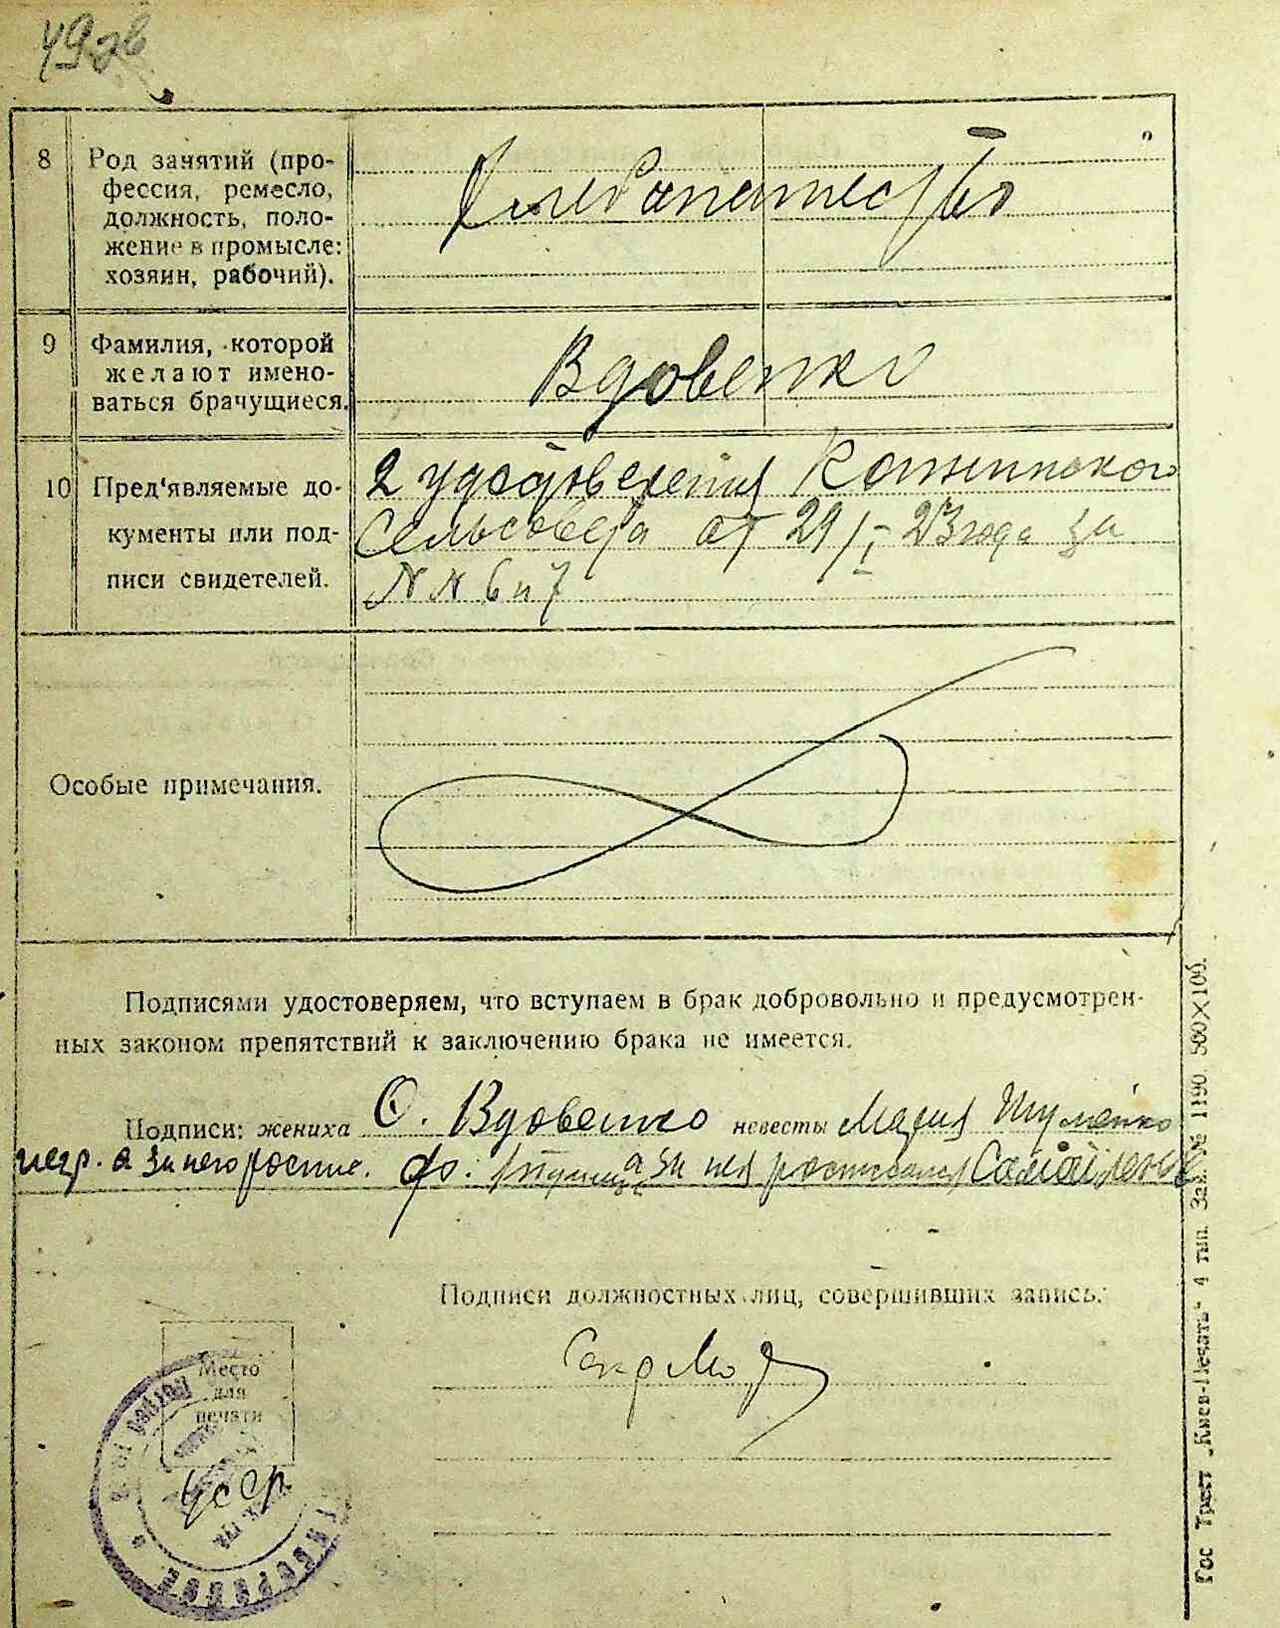 49 об
8 Род занятий (про-
фессия, ремесло,
должность, поло-
жение в промысле:
хозяин, рабочий).
Хлебопашество
9 Фамилия, которой
желают имено-
ваться брачущиеся.
Вдовенко
10 Пред'являемые до-
кументы или под-
писи свидетелей.
2 удостоверения
Сельсовета от 29/I-23 года за
NN 6 и 7
Особые примечания.
Подписями удостоверяем, что вступаем в брак добровольно и предусмотрен-
ных законом препятствий к заключению брака не имеется.
Подписи: жениха Вдовенко невесты Мария Шумейко
негр. а за него роспис. за нея росписался
Подписи должностных лиц, совершивших запись:
Место
для
печати
УССР
Гос Трест „Киев-Печать“ 4 тип. Зак. № 1190. 500×100.